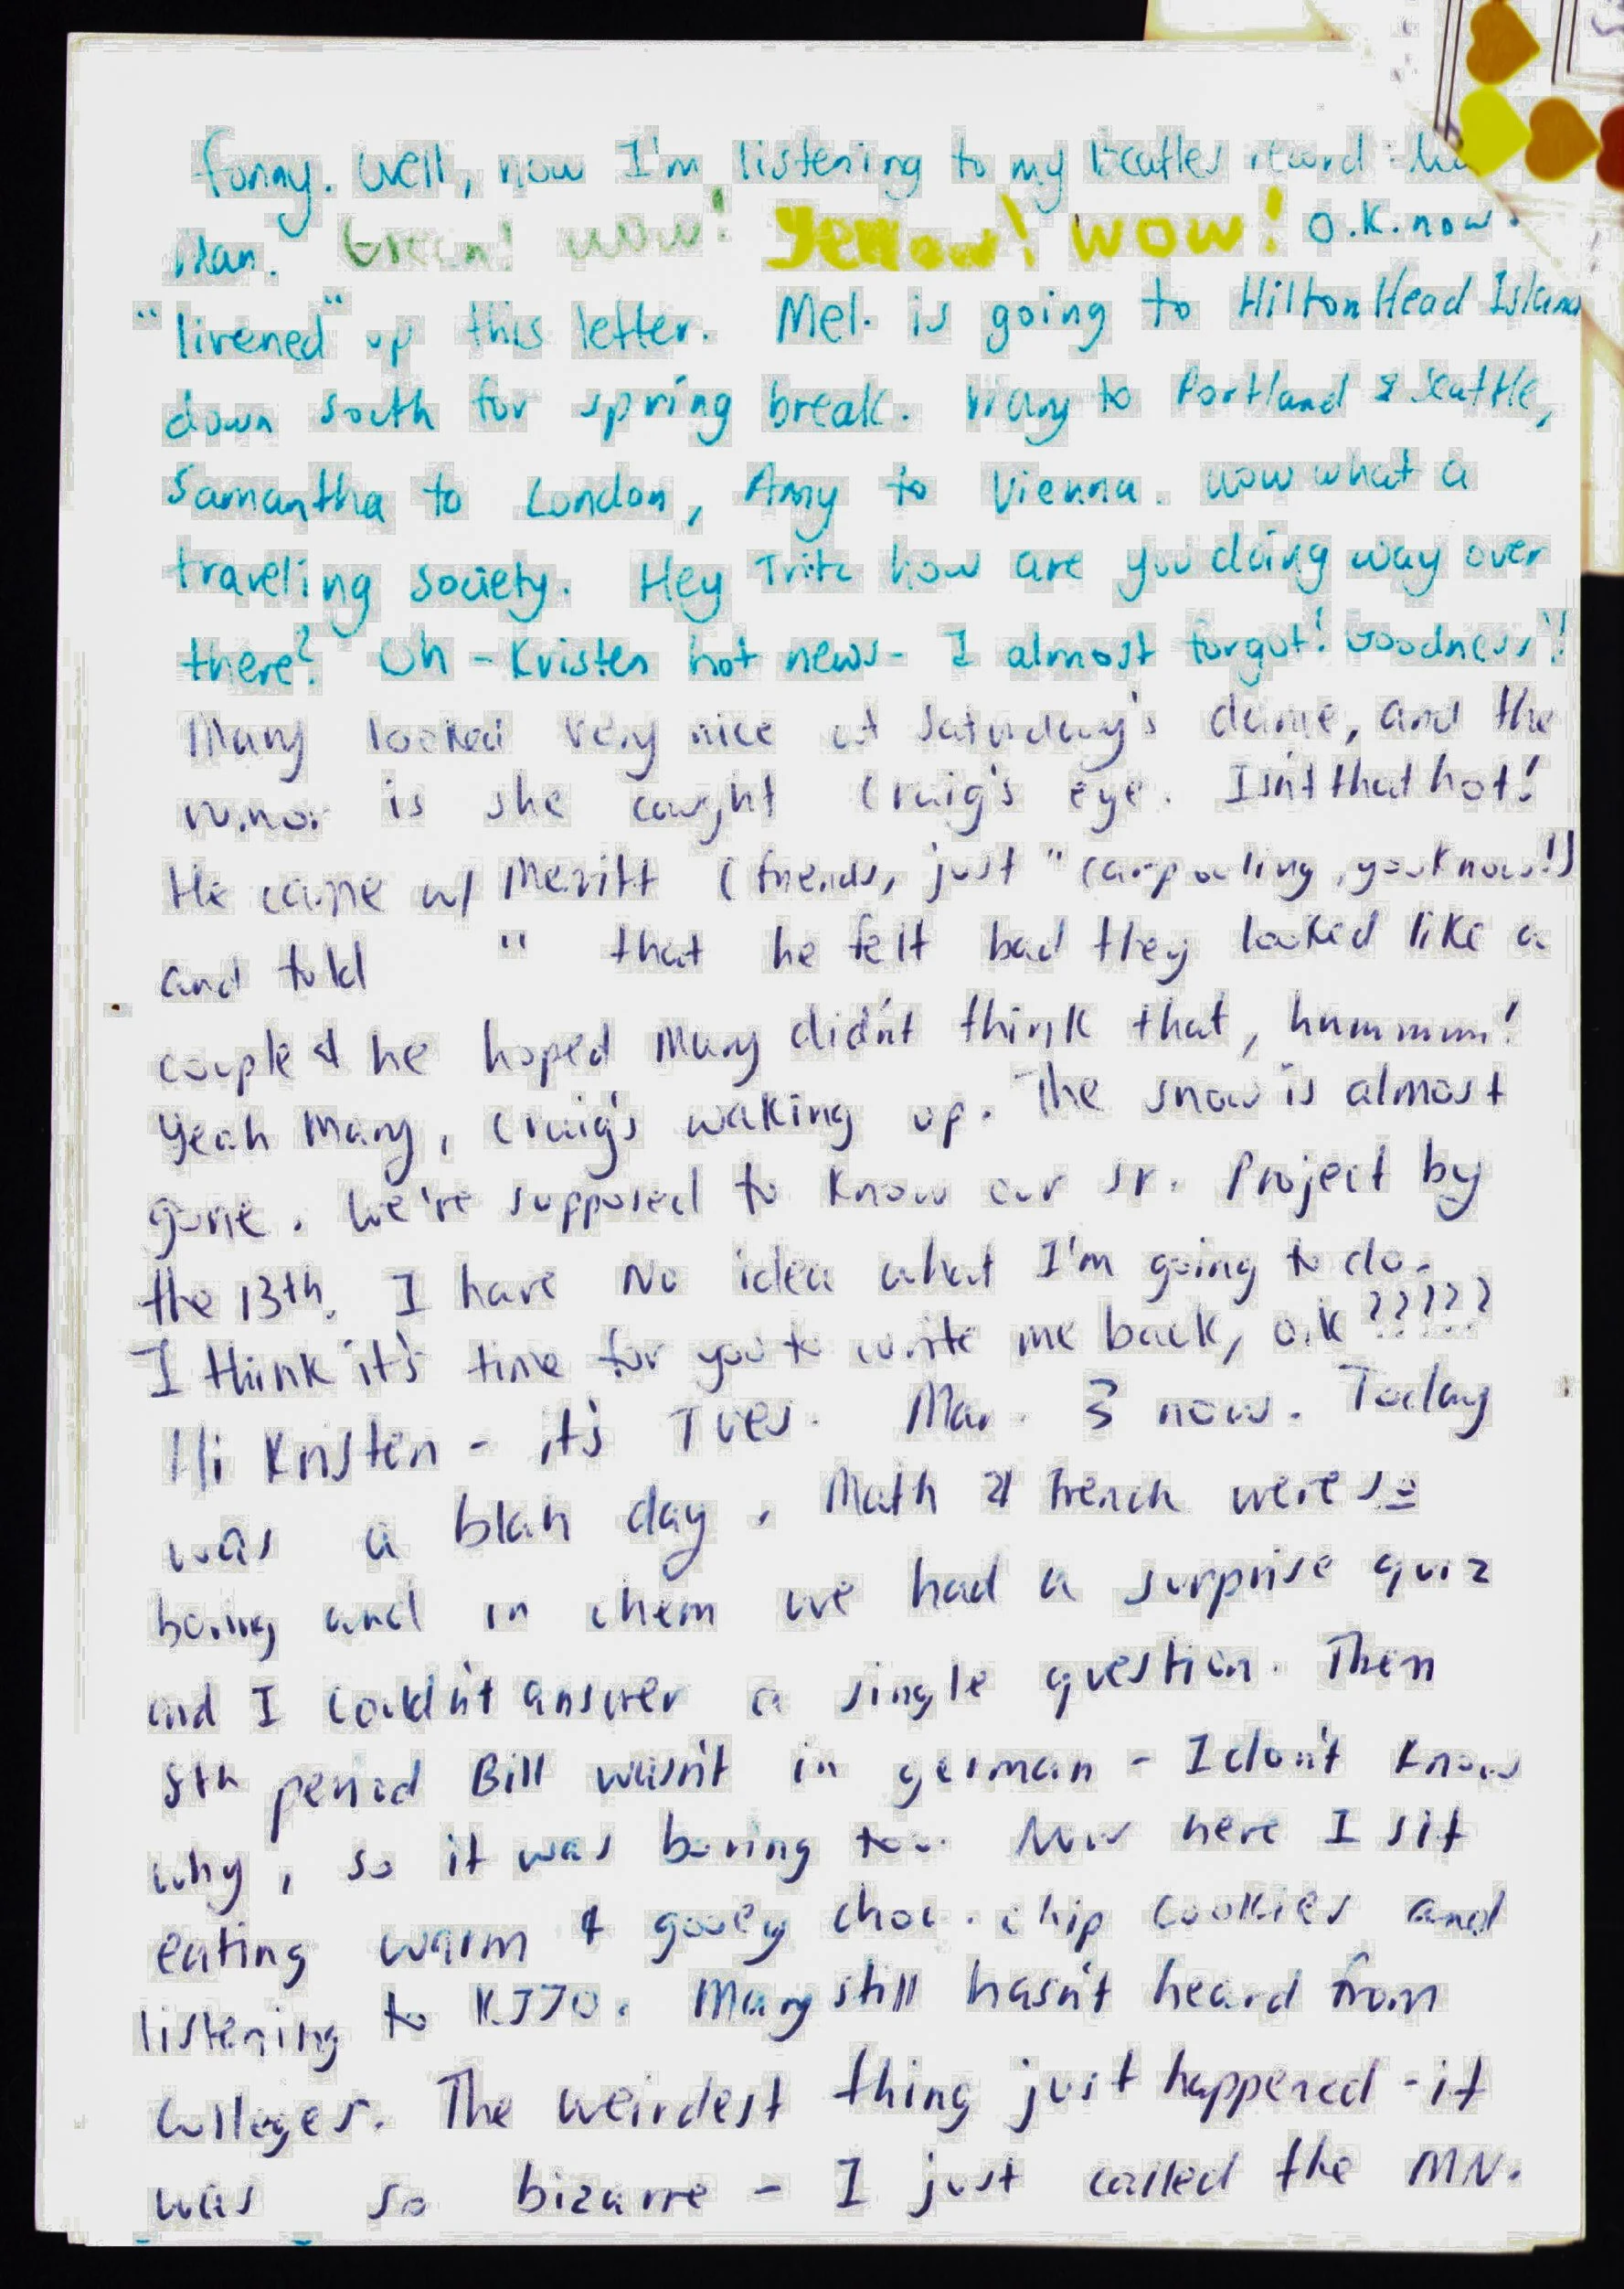 funny. Well, now I'm listening to my Beatles record
man. Green! wow! Yellow! WOW! O.K. now
"livened" up this letter. Mel. is going to Hilton Head Island
down south for spring break. Mary to Portland & Seattle,
Samantha to London, Amy to Vienna. wow what a
traveling society. Hey Tritz how are you doing way over
there? Oh - Kristen hot news - I almost forgot! Goodness!!
Mary looked very nice at Saturday's dance, and the
rumor is she caught Craig's eye. Isn't that hot!
He came w/ Meritt (friends, just "carpooling, you know!)
and told " that he felt bad they looked like a
couple & he hoped Mary didn't think that, hummmm!
Yeah Mary, Craig's waking up. The snow is almost
gone. We're supposed to know our sr. Project by
the 13th. I have No idea what I'm going to do.
I think it's time for you to write me back, o.k ?????
Hi Kristen - it's Tues. Mar. 3 now. Today
was a blah day. Math & French were so
boring and in chem we had a surprise quiz
and I couldn't answer a single question. Then
8th period Bill wasn't in german - I don't know
why, so it was boring too. Now here I sit
eating warm & gooey choc. chip cookies and
listening to KJJO. Mary still hasn't heard from
colleges. The weirdest thing just happened - it
was so bizarre - I just called the MN.